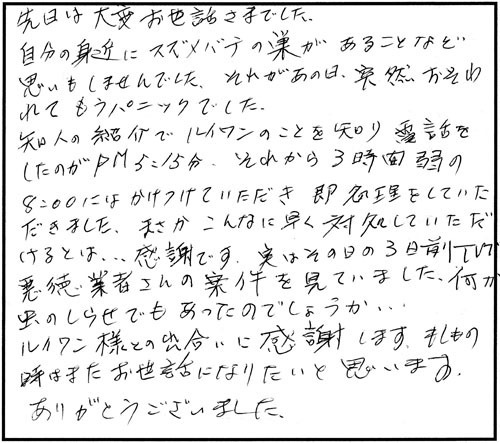 先日は大変お世話さまでした.
自分の身近にスズメバチの巣があることなど
思いもしませんでした、それがあの日、突然、おそわ
れてもうパニックでした.
知人の紹介でルイワンのことを知り電話を
したのがPM5:15分. それから3時間弱の
8:00にはかけつけていただき 即処理をしていた
だきました、まさかこんなに早く対処していただ
けるとは... 感謝です、実はその日の3日前TVで
悪徳業者さんの案件を見ていました、何か
虫のしらせでもあったのでしょうか...
ルイワン様との出合いに感謝します、もしもの
時はまたお世話になりたいと思います.
ありがとうございました.